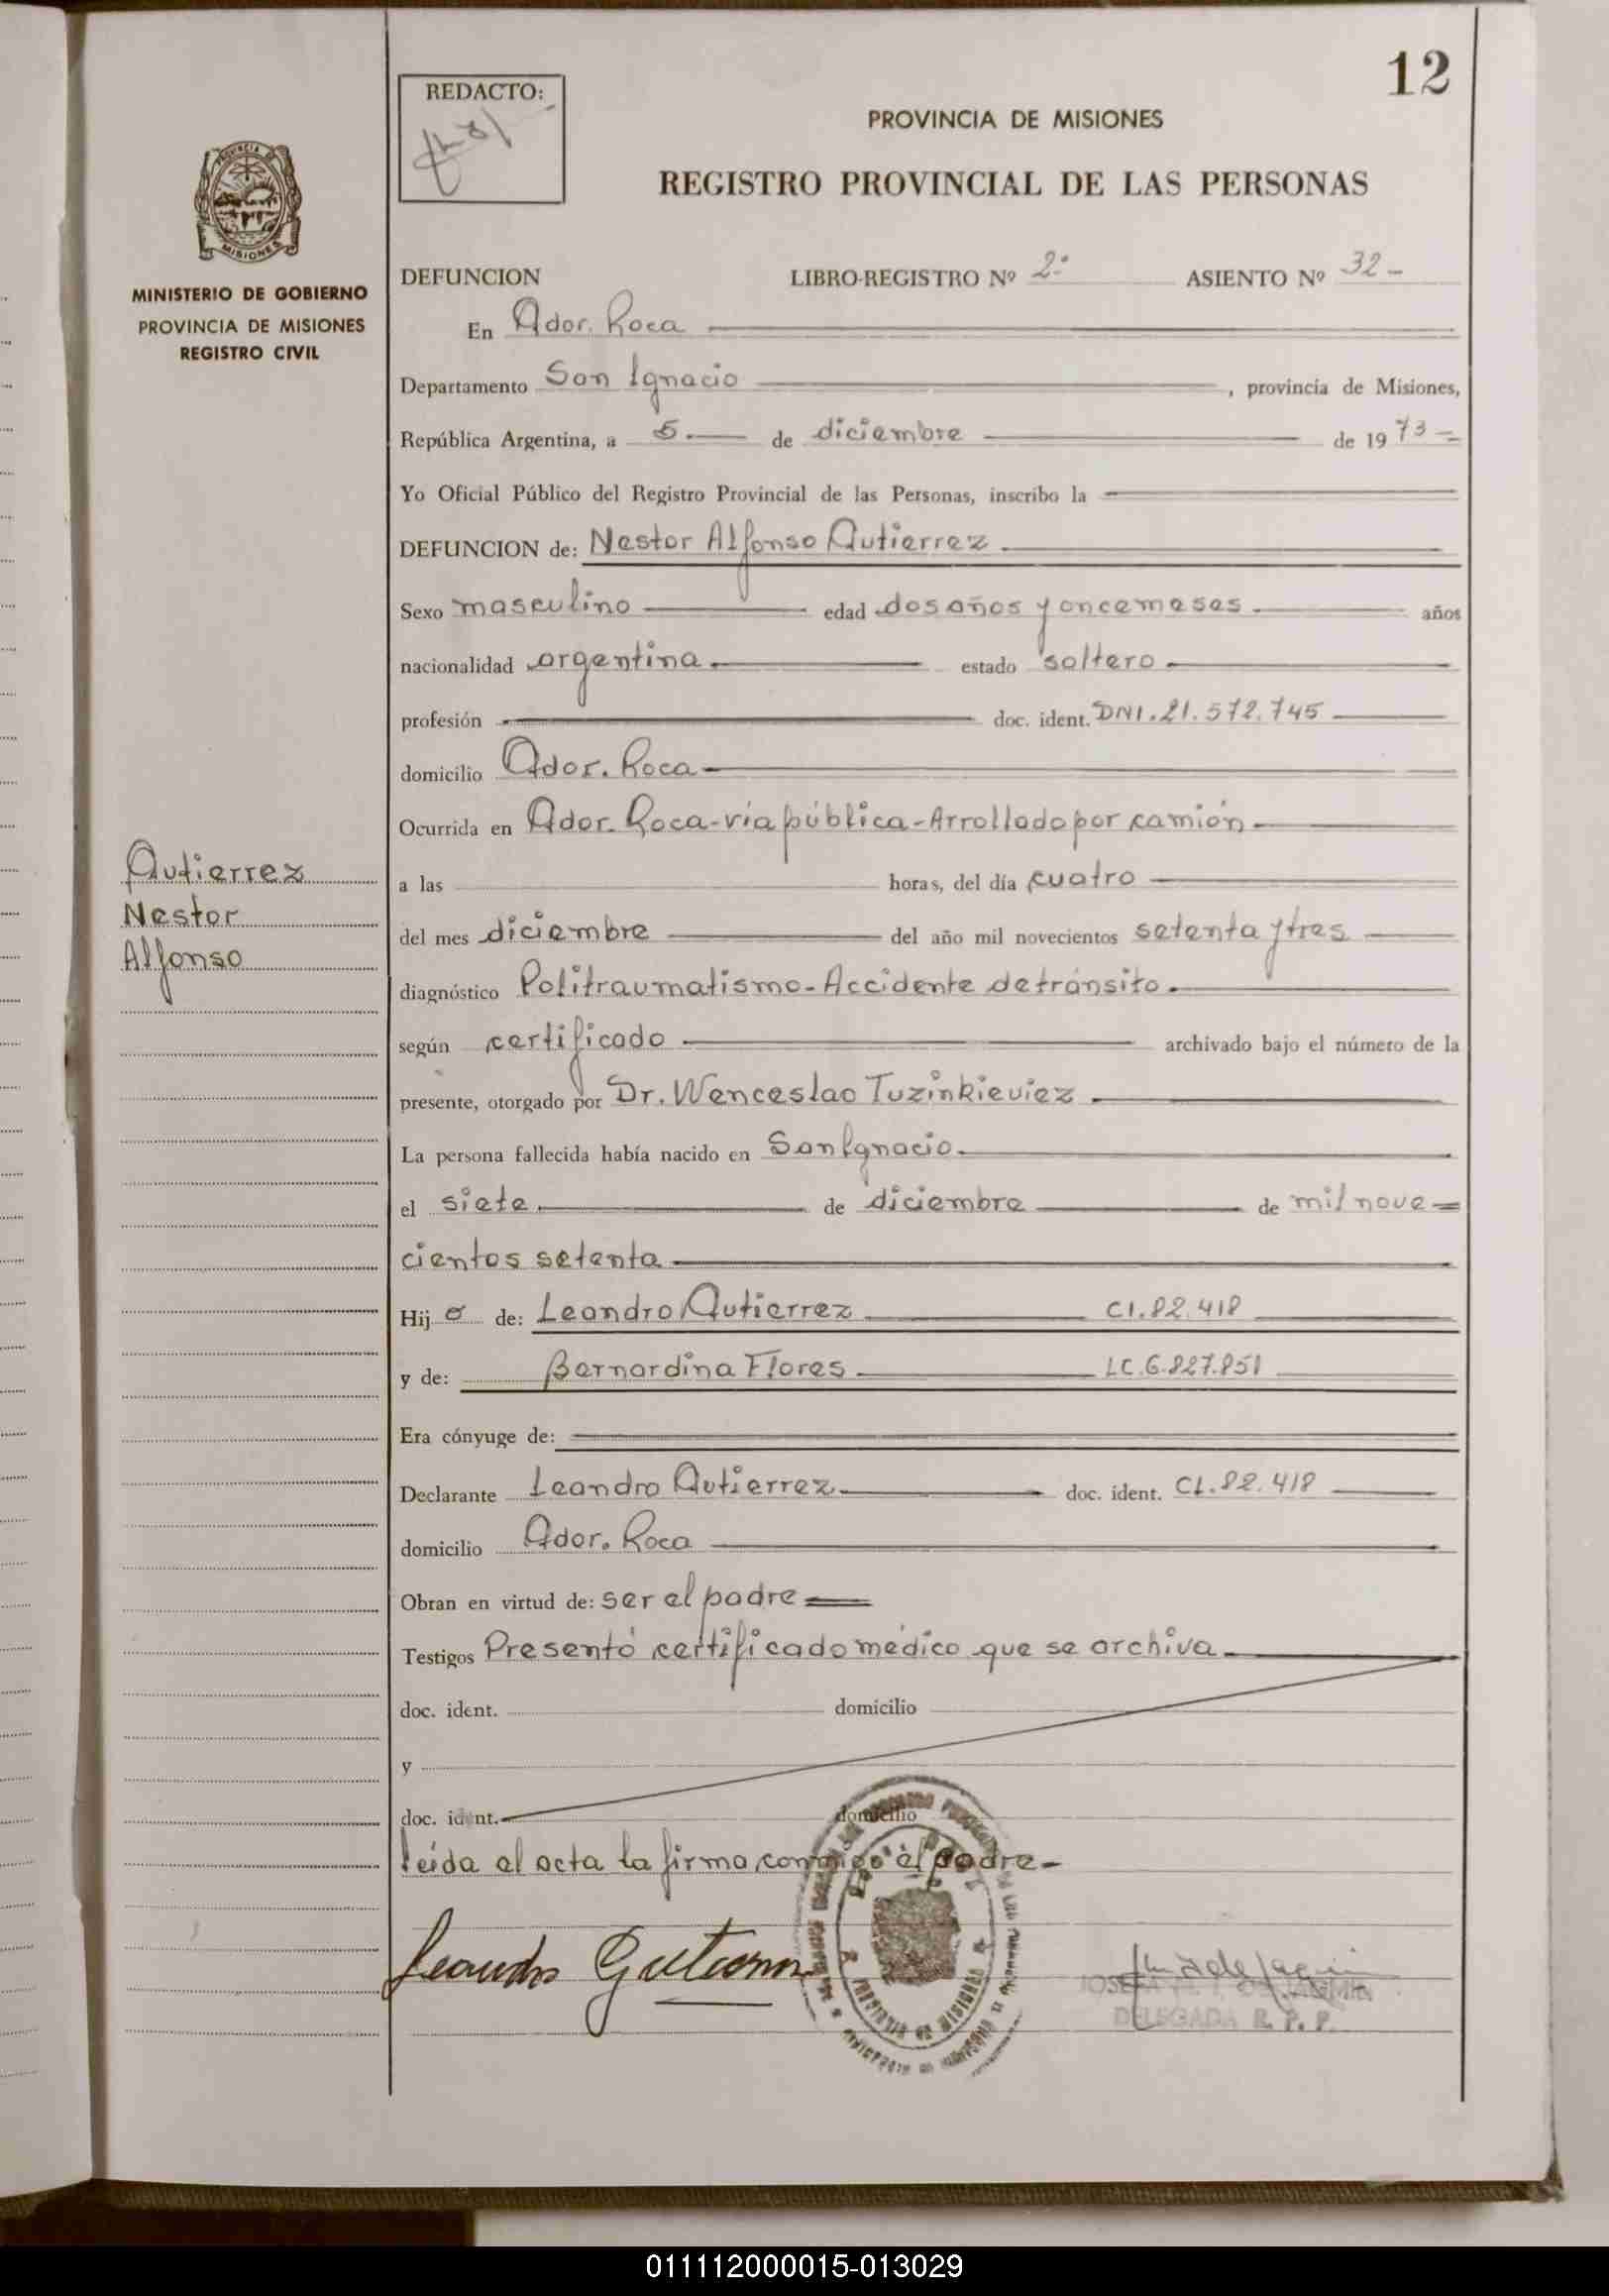 12
REDACTO:
PROVINCIA DE MISIONES
REGISTRO PROVINCIAL DE LAS PERSONAS
MINISTERIO DE GOBIERNO
PROVINCIA DE MISIONES
REGISTRO CIVIL
DEFUNCION LIBRO-REGISTRO Nº 2º ASIENTO Nº 32-
En Gdor. Roca
Departamento San Ignacio, provincia de Misiones,
República Argentina, a 5 de diciembre de 1973
Yo Oficial Público del Registro Provincial de las Personas, inscribo la
DEFUNCION de: Nestor Alfonso Gutierrez
Sexo masculino edad dos años y once meses. años
nacionalidad argentina. estado soltero
profesión doc. ident. DNI. 21.572.745
domicilio Gdor. Roca
Ocurrida en Gdor. Roca-vía pública-Arrollado por camión
a las horas, del día cuatro
del mes diciembre del año mil novecientos setenta y tres
diagnóstico Politraumatismo-Accidente de tránsito.
según certificado archivado bajo el número de la
presente, otorgado por Dr. Wenceslao Tuzinkieviez
La persona fallecida había nacido en San Ignacio.
el siete de diciembre de mil nove=
cientos setenta
Hijo de: Leandro Gutierrez CI.82.418
y de: Bernardina Flores LC.6.827.851
Era cónyuge de:
Declarante Leandro Gutierrez doc. ident. CI.82.418
domicilio Gdor. Roca
Obran en virtud de: ser el padre
Testigos Presentó certificado médico que se archiva
doc. ident. domicilio
y
doc. ident. domicilio
leída el acta la firma conmigo el padre-
Leandro Gutierrez
DELEGADA R. P. P.
Gutierrez
Nestor
Alfonso
011112000015-013029